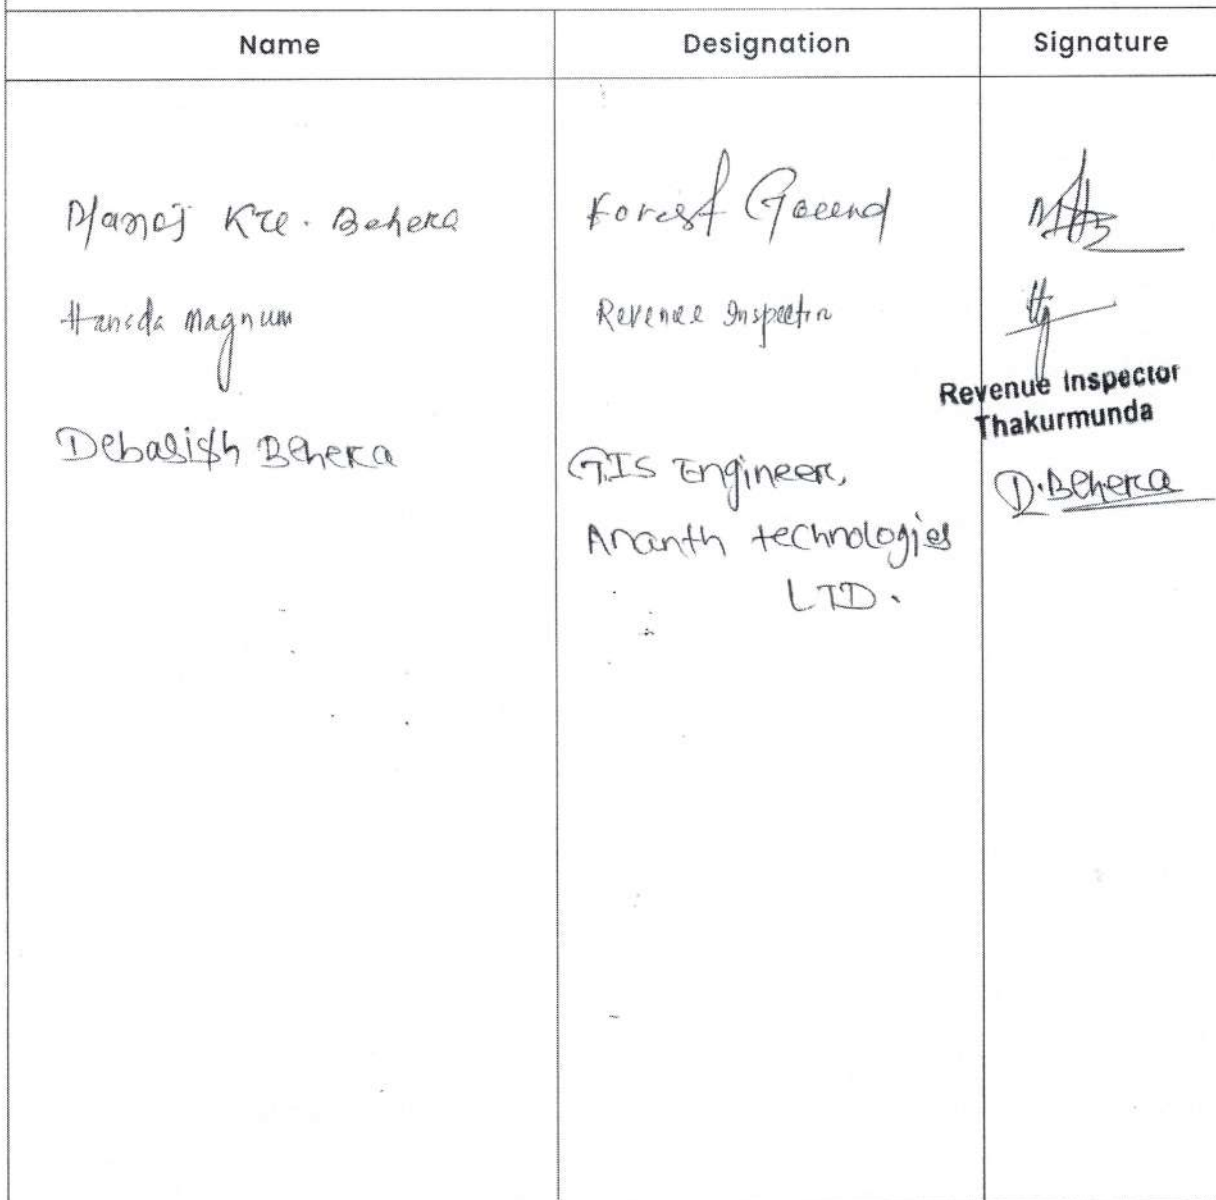 Name Designation Signature
Manoj Kr. Behera Forest Guard
Hansda Magnum Revenue Inspector
Revenue Inspector
Thakurmunda
Debasish Behera GIS Engineer, D. Behera
Ananth technologies
LTD.